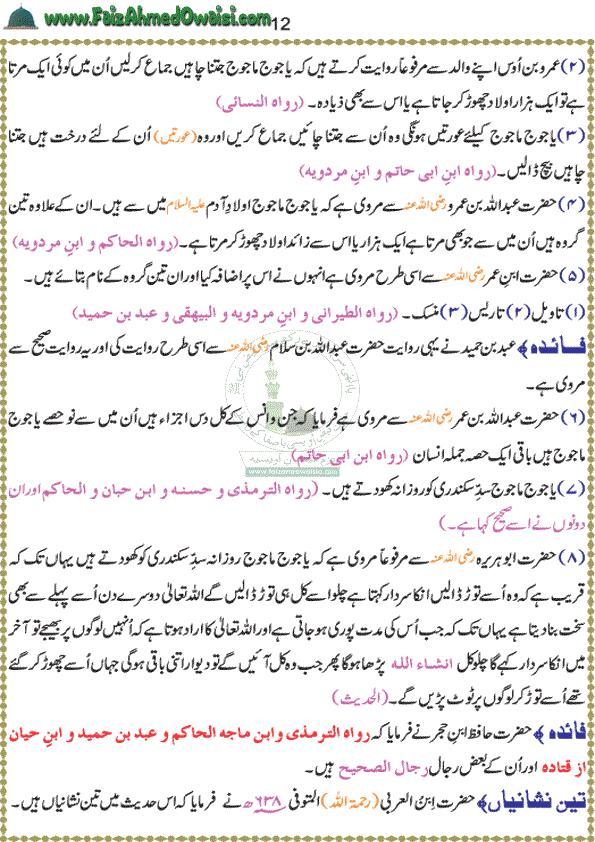 www.FaizAhmedOwaisi.com
12
(۲) عمرو بن اَوس اپنے والد سے مرفوعاً روایت کرتے ہیں کہ یاجوج ماجوج جتنا چاہیں جماع کرلیں اُن میں کوئی ایک مرتا
ہے تو ایک ہزار اولاد چھوڑ کر جاتا ہے یا اس سے بھی ذیادہ۔ (رواہ النسائی)
(۳) یاجوج ماجوج کیلئے عورتیں ہونگی وہ اُن سے جتنا چائیں جماع کریں اور وہ (عورتیں) اُن کے لئے درخت ہیں جتنا
چاہیں بیچ ڈالیں۔ (رواہ ابنِ ابی حاتم و ابنِ مردویہ)
(۴) حضرت عبداللہ بن عمرو رضی اللہ عنہ سے مروی ہے کہ یاجوج ماجوج اولادِ آدم علیہ السلام میں سے ہیں۔ ان کے علاوہ تین
گروہ ہیں اُن میں سے جو بھی مرتا ہے ایک ہزار یا اس سے زائد اولاد چھوڑ کر مرتا ہے۔ (رواہ الحاکم و ابنِ مردویہ)
(۵) حضرت ابنِ عمر رضی اللہ عنہ سے اسی طرح مروی ہے انہوں نے اس پر اضافہ کیا اور ان تین گروہ کے نام بتائے ہیں۔
(۱) تاویل (۲) تاریس (۳) منسک۔ (رواہ الطبرانی و ابنِ مردویہ و البیھقی و عبد بن حمید)
فائدہ﴾ عبد بن حمید نے یہی روایت حضرت عبداللہ بن سلام رضی اللہ عنہ سے اسی طرح روایت کی اور یہ روایت صحیح سے
مروی ہے۔
(۶) حضرت عبداللہ بن عمر رضی اللہ عنہ سے مروی ہے فرمایا کہ جن و انس کے کل دس اجزاء ہیں اُن میں سے نو حصے یاجوج
ماجوج ہیں باقی ایک حصہ جملہ انسان (رواہ ابن ابی حاتم)
(۷) یاجوج ماجوج سدِّ سکندری کو روزانہ کھودتے ہیں۔ (رواہ الترمذی و حسنہ و ابن حبان و الحاکم اور ان
دونوں نے اسے صحیح کہا ہے۔)
(۸) حضرت ابو ہریرہ رضی اللہ عنہ سے مرفوعاً مروی ہے کہ یاجوج ماجوج روزانہ سدِّ سکندری کو کھودتے ہیں یہاں تک کہ
قریب ہے کہ وہ اُسے توڑ ڈالیں انکا سردار کہتا ہے چلو اسے کل ہی توڑ ڈالیں گے اللہ تعالیٰ دوسرے دن اُسے پہلے سے بھی
سخت بنا دیتا ہے یہاں تک کہ جب اُس کی مدت پوری ہو جاتی ہے اور اللہ تعالیٰ کا ارادہ ہوتا ہے کہ اُنہیں لوگوں پر بھیجے تو آخر
میں انکا سردار کہے گا چلو کل انشاء اللہ پڑھا ہوگا پھر جب وہ کل آئیں گے تو دیوار اتنی باقی ہوگی جہاں اُسے چھوڑ کر گئے
تھے اُسے توڑ کر لوگوں پر ٹوٹ پڑیں گے۔ (الحدیث)
فائدہ﴾ حضرت حافظ ابنِ حجر نے فرمایا کہ رواہ الترمذی وابن ماجہ الحاکم و عبد بن حمید و ابنِ حیان
از قتادہ اور اُن کے بعض رجال رجال الصحیح ہیں۔
تین نشانیاں﴾ حضرت اِبنُ العربی (رحمۃ اللہ) المتوفی ۶۳۸ھ نے فرمایا کہ اس حدیث میں تین نشانیاں ہیں۔